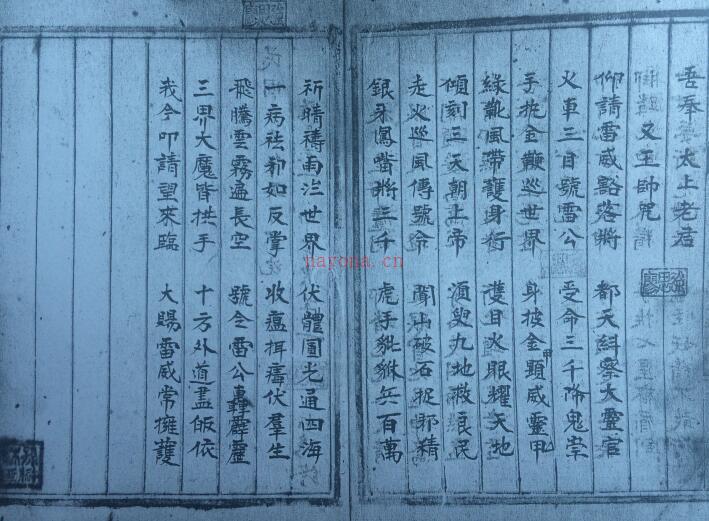 吾奉太上老君
又王帥咒
仰請雷威豁落將 都天糾察大靈官
火車三目號雷公 受命三千降鬼祟
手执金鞭巡世界 身披金甲顯威靈甲
綠靴風帶護身 雙目火眼耀天地
傾刻三天朝上帝 須臾九地救良民
走火巡風傳號令 闖山破石捉邪精
銀牙鳳嘴將三千 虎手貔貅兵百萬
祈晴禱雨世界 伏體圓光通四海
一病祛邪如反掌 收瘟伏羣生
飛騰雲霧遍長空 號令雷公轟霹靂
三界大魔皆拱手 十方外道盡皈依
我今叩請望來臨 大賜雷威常擁護
nayona.cn